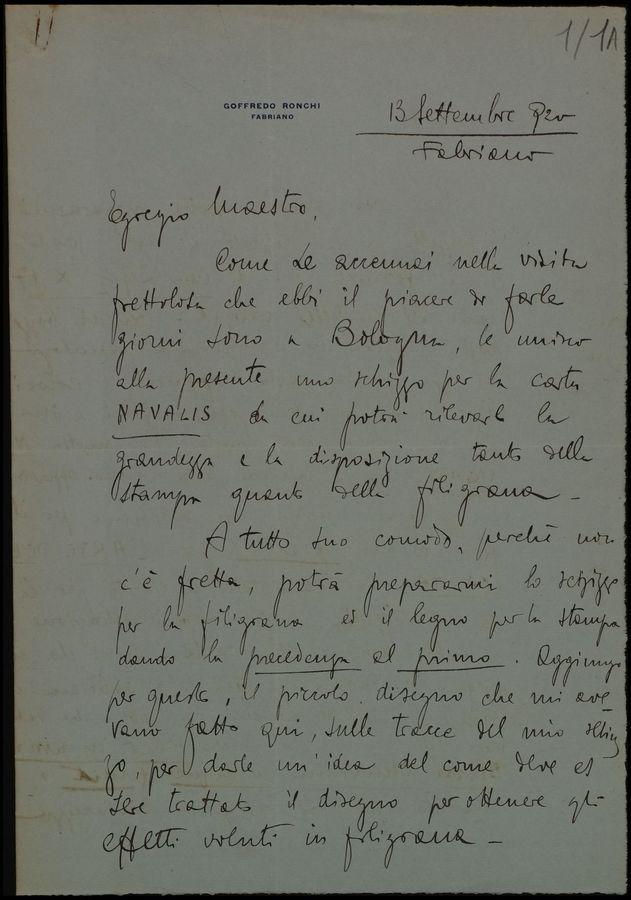 1/1A
GOFFREDO RONCHI
FABRIANO
13 Settembre 920
Fabriano
Egregio Maestro,
Come Le accennai nella visita
frettolosa che ebbi il piacere di farle
giorni sono a Bologna, le unisco
alla presente uno schizzo per la carta
NAVALIS da cui potrà rilevare la
grandezza e la disposizione tanto della
stampa quanto della filigrana –
A tutto suo comodo, perchè non
c'è fretta, potrà prepararmi lo schizzo
per la filigrana ed il legno per la stampa
dando la precedenza al primo. Aggiungo
per questo, il piccolo disegno che mi ave-
vano fatto qui, sulle tracce del mio schiz
zo, per darle un'idea del come deve es
sere trattato il disegno per ottenere gli
effetti voluti in filigrana –